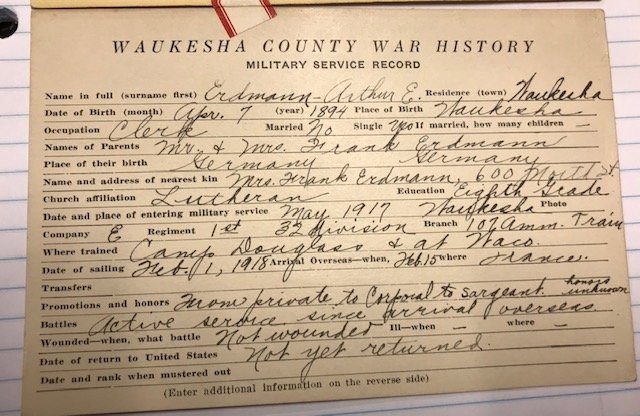 WAUKESHA COUNTY WAR HISTORY
MILITARY SERVICE RECORD
Name in full (surname first) Erdmann - Arthur E. Residence (town) Waukesha
Date of Birth (month) Apr. 7 (year) 1894 Place of Birth Waukesha
Occupation Clerk Married No Single Yes If married, how many children –
Names of Parents Mr. & Mrs. Frank Erdmann
Place of their birth Germany Germany
Name and address of nearest kin Mrs. Frank Erdmann, 600 North St.
Church affiliation Lutheran Education Eighth Grade
Date and place of entering military service May 1917 Waukesha Photo
Company E Regiment 1st 32 Division Branch 107 Amm. Train
Where trained Camp Douglass & at Waco.
Date of sailing Feb. 1, 1918 Arrival Overseas—when, Feb. 15 where France.
Transfers
Promotions and honors From private to Corporal to Sargeant. honors unknown
Battles Active service since arrival overseas
Wounded—when, what battle Not wounded Ill—when – where –
Date of return to United States Not yet returned.
Date and rank when mustered out
(Enter additional information on the reverse side)